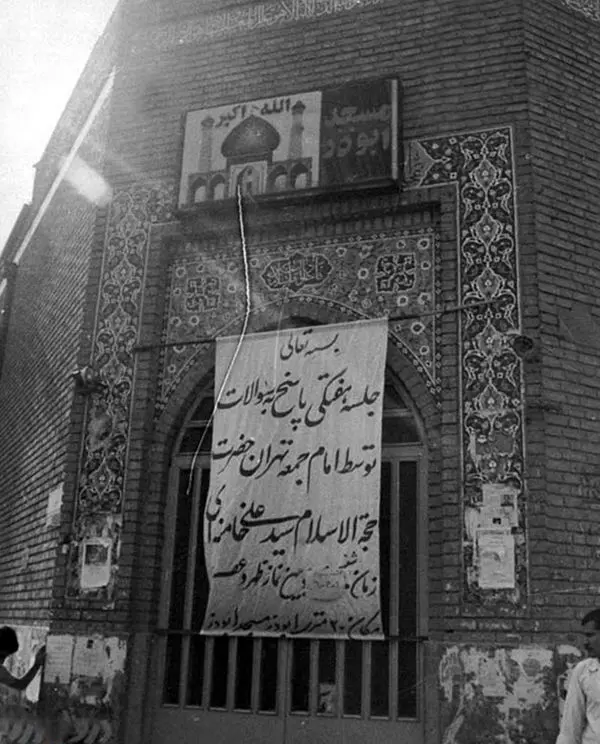 الله اکبر
مسجد
ابوذر
بسمه تعالی
جلسه هفتگی پاسخ به سوالات
توسط امام جمعه تهران حضرت
حجة الاسلام سید علی خامنه‌ای
زمان: شنبه بین نماز ظهر و عصر
مکان: ۲۰ متری ابوذر مسجد ابوذر